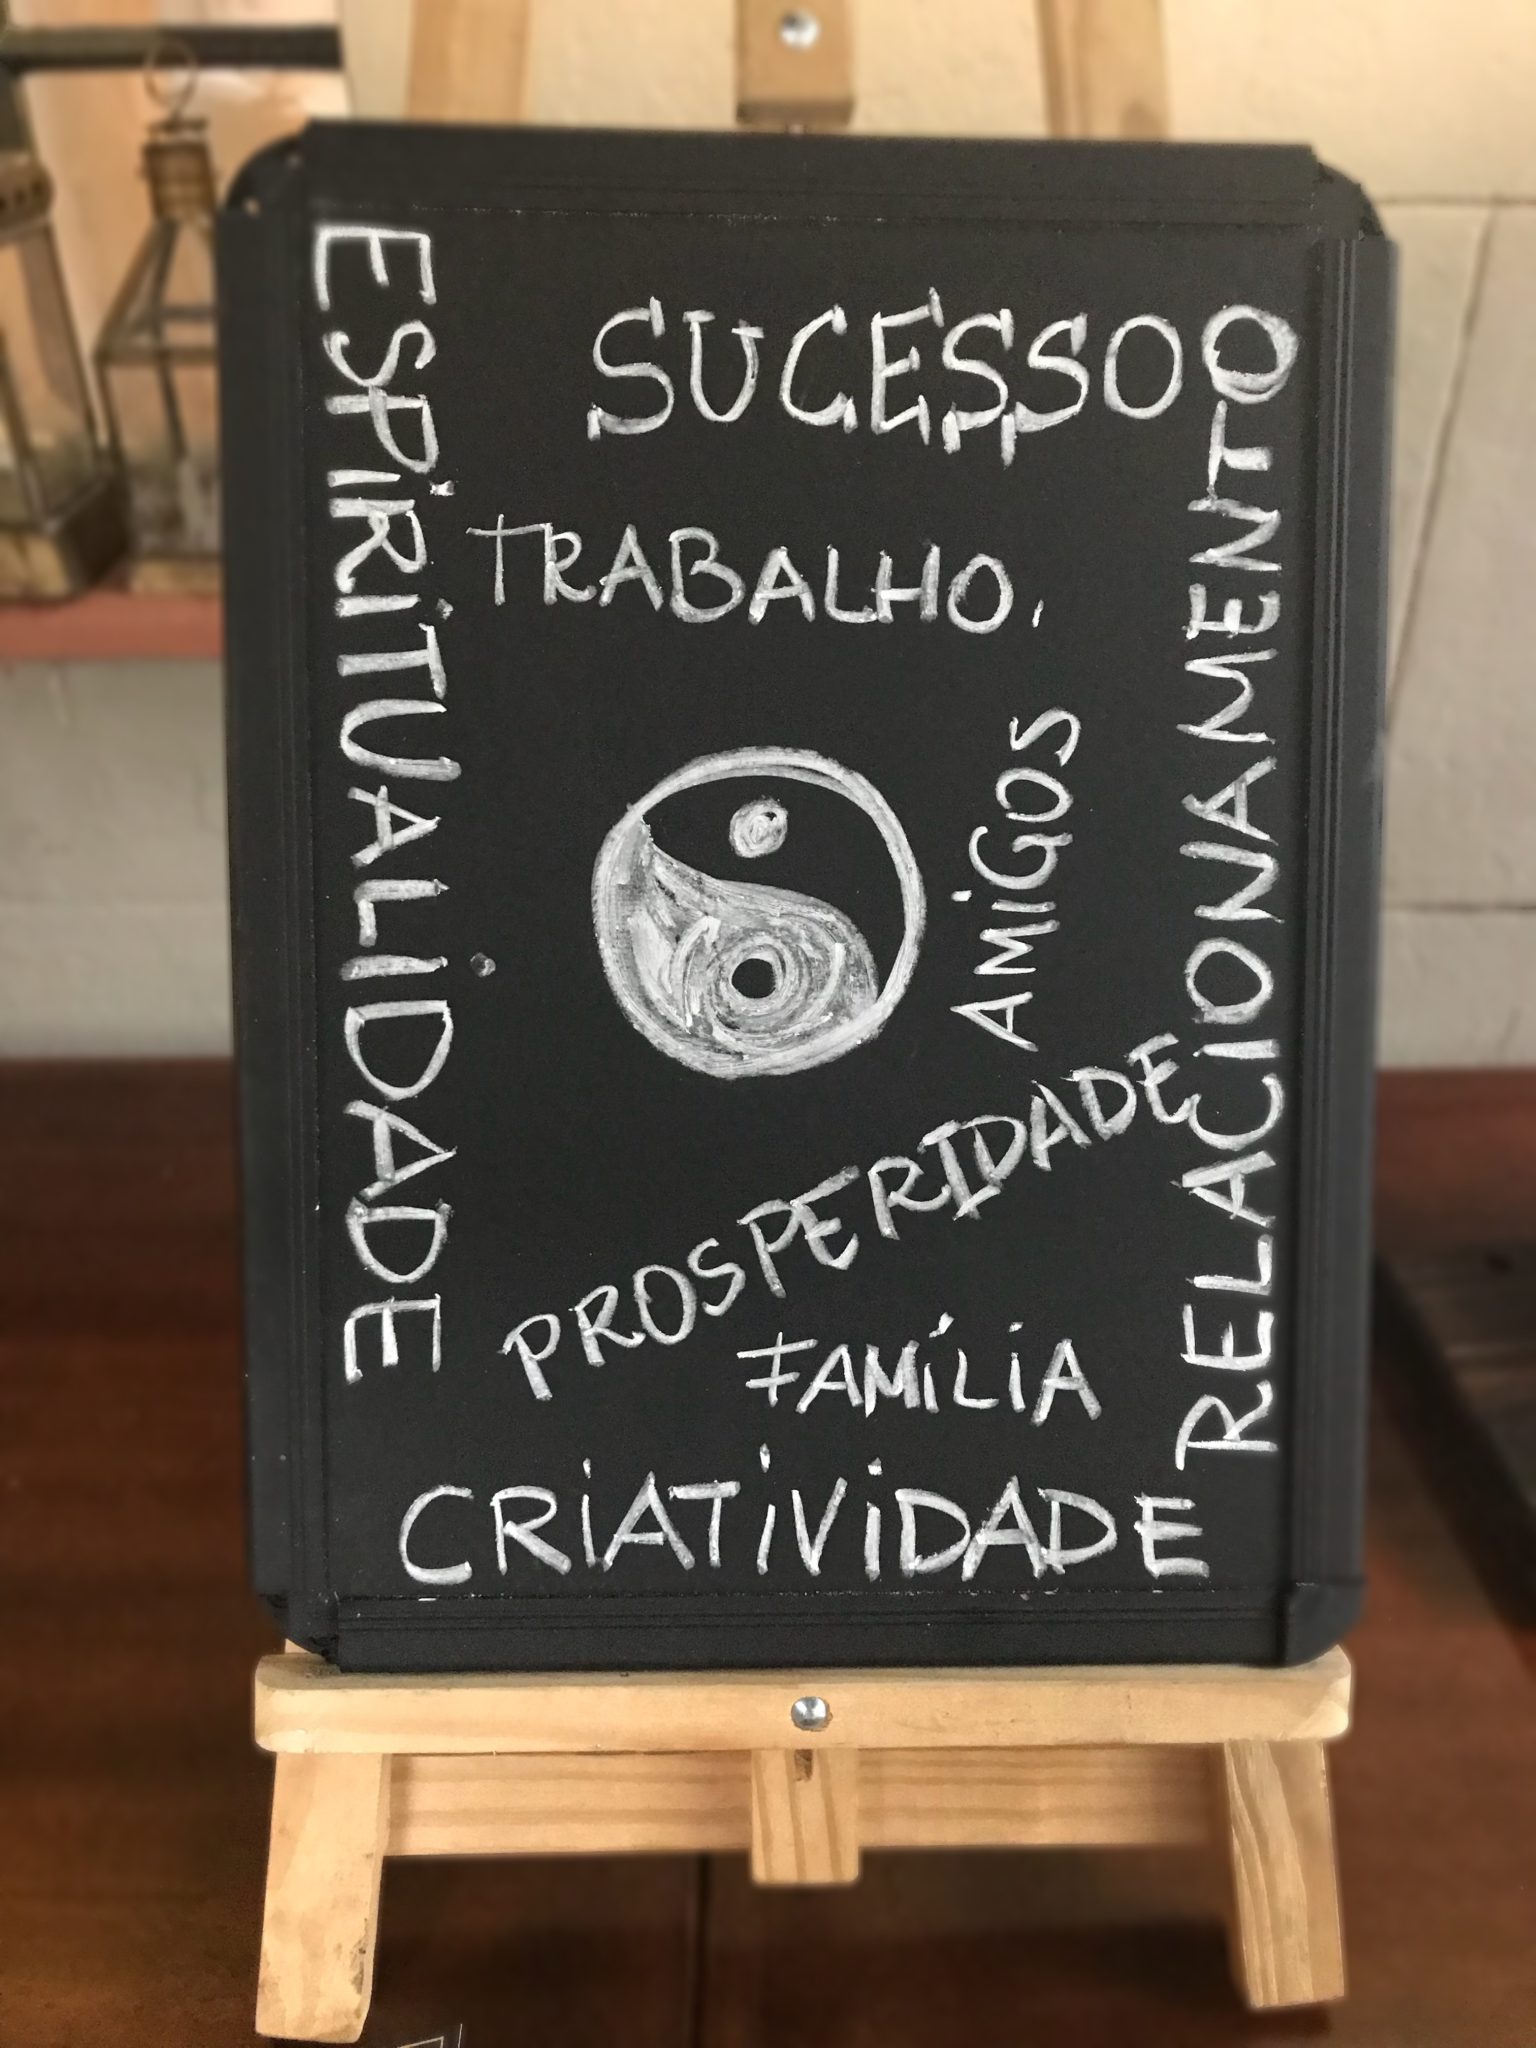 ESPIRITUALIDADE
SUCESSO
TRABALHO,
AMIGOS
RELACIONAMENTO
PROSPERIDADE
FAMÍLIA
CRIATIVIDADE